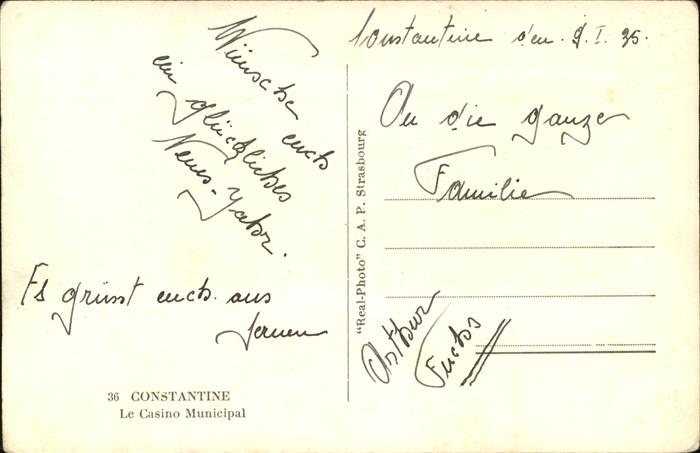 Constantine den. 2.I.35.
Wünsche euch
ein glückliches
Neues-Jahr.
Es grüsst euch. aus
fernen
An die ganze
Familie
Arthur
Fuchs
"Real-Photo" C. A. P. Strasbourg
36 CONSTANTINE
Le Casino Municipal